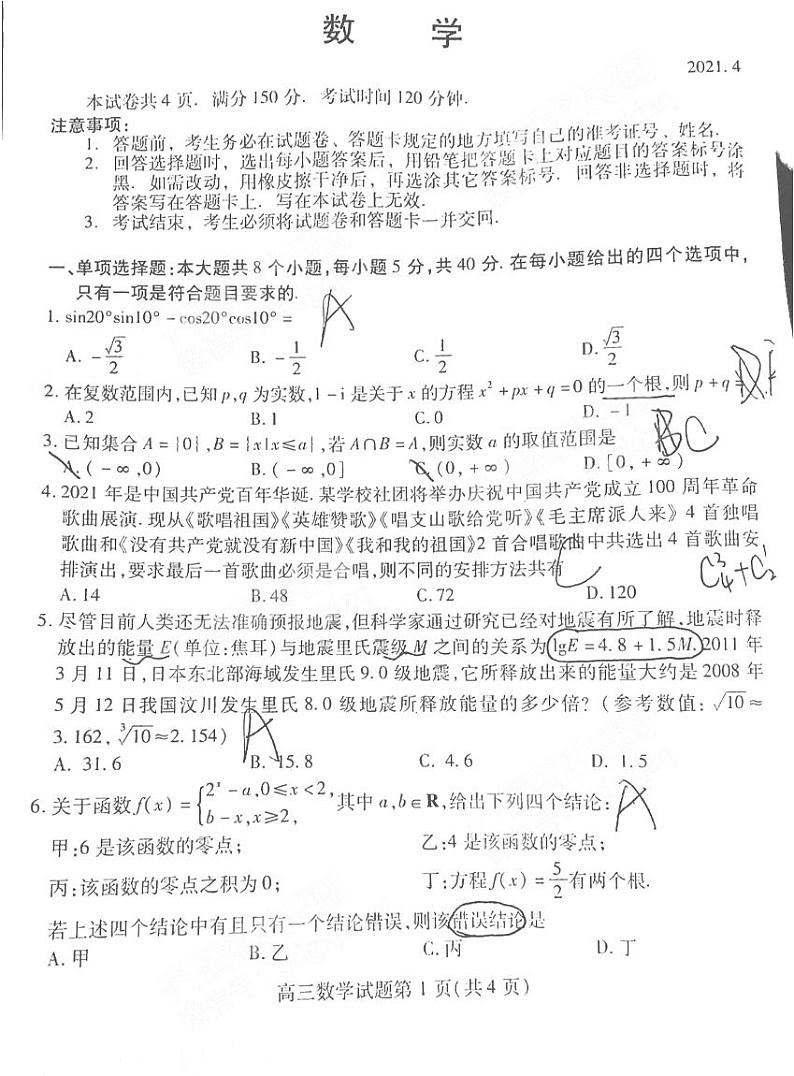 数 学
2021.4
本试卷共4页. 满分150分. 考试时间120分钟.
注意事项:
1. 答题前, 考生务必在试题卷、答题卡规定的地方填写自己的准考证号、姓名.
2. 回答选择题时, 选出每小题答案后, 用铅笔把答题卡上对应题目的答案标号涂
黑. 如需改动, 用橡皮擦干净后, 再选涂其它答案标号. 回答非选择题时, 将
答案写在答题卡上. 写在本试卷上无效.
3. 考试结束, 考生必须将试题卷和答题卡一并交回.
一、单项选择题:本大题共8个小题,每小题5分,共40分. 在每小题给出的四个选项中,
只有一项是符合题目要求的.
1. sin20°sin10° - cos20°cos10° = A
A. -√3/2 B. -1/2 C. 1/2 D. √3/2
2. 在复数范围内,已知p,q为实数,1-i是关于x的方程x²+px+q=0的一个根,则p+q=
A. 2 B. 1 C. 0 D. -1
3. 已知集合A={0},B={x|x≤a},若A∩B=A,则实数a的取值范围是 B C
A. (-∞,0) B. (-∞,0] C. (0,+∞) D. [0,+∞)
4. 2021年是中国共产党百年华诞. 某学校社团将举办庆祝中国共产党成立100周年革命
歌曲展演. 现从《歌唱祖国》《英雄赞歌》《唱支山歌给党听》《毛主席派人来》4首独唱
歌曲和《没有共产党就没有新中国》《我和我的祖国》2首合唱歌曲中共选出4首歌曲安
排演出,要求最后一首歌曲必须是合唱,则不同的安排方法共有 C₄³+C₂¹
A. 14 B. 48 C. 72 D. 120
5. 尽管目前人类还无法准确预报地震,但科学家通过研究已经对地震有所了解,地震时释
放出的能量E(单位:焦耳)与地震里氏震级M之间的关系为lgE=4.8+1.5M. 2011年
3月11日,日本东北部海域发生里氏9.0级地震,它所释放出来的能量大约是2008年
5月12日我国汶川发生里氏8.0级地震所释放能量的多少倍? (参考数值: √10≈
3.162, ³√10≈2.154) A
A. 31.6 B. 15.8 C. 4.6 D. 1.5
6. 关于函数f(x)={2ˣ-a,0≤x<2, b-x,x≥2, 其中a,b∈R,给出下列四个结论: A
甲:6是该函数的零点; 乙:4是该函数的零点;
丙:该函数的零点之积为0; 丁:方程f(x)=5/2有两个根.
若上述四个结论中有且只有一个结论错误,则该错误结论是
A. 甲 B. 乙 C. 丙 D. 丁
高三数学试题第1页(共4页)